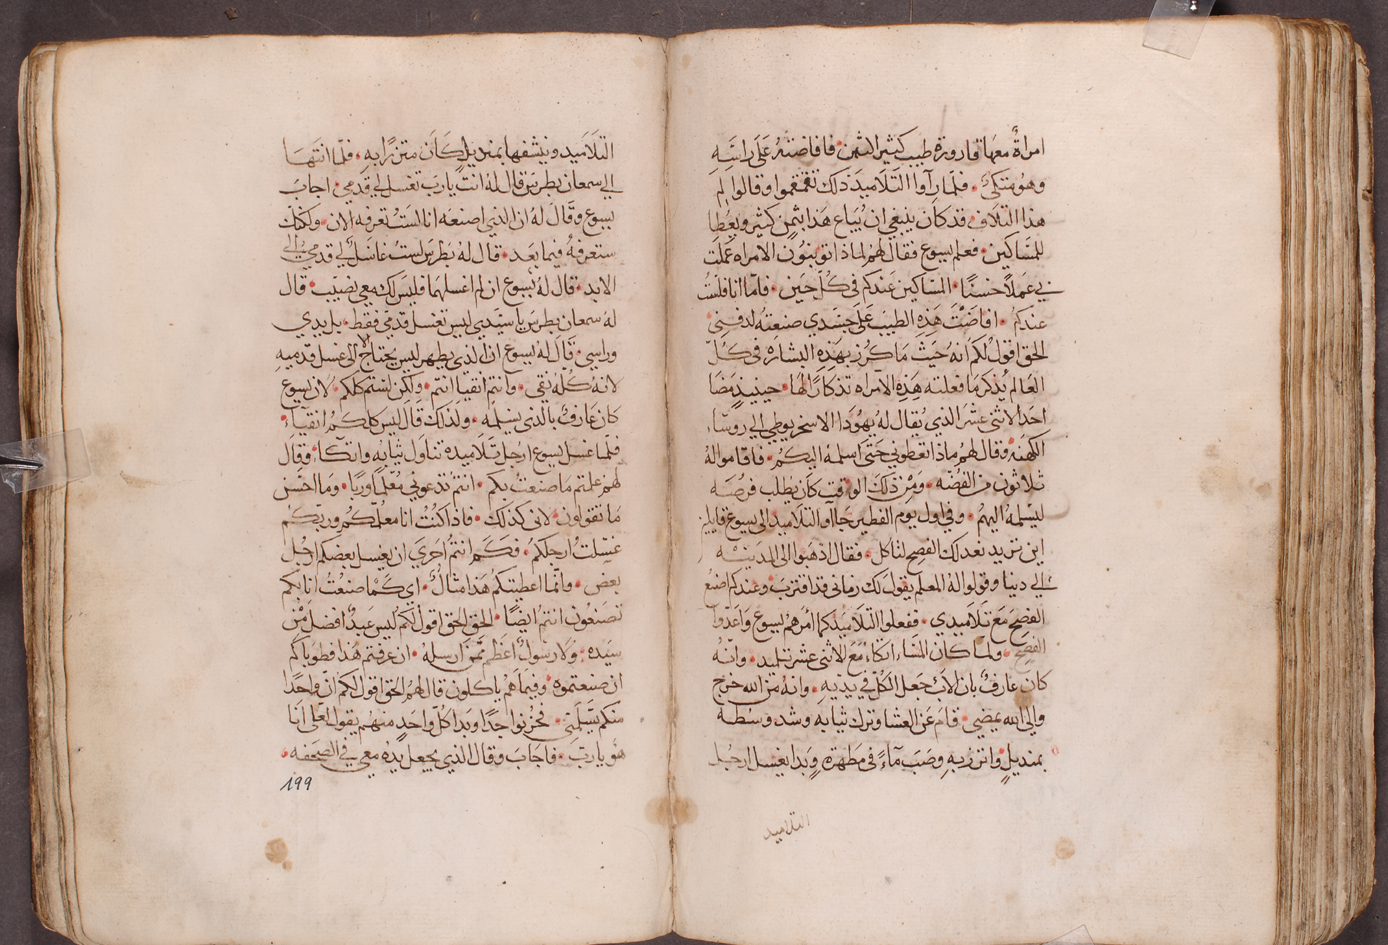 امراةٌ معهَا قارورة طيب كثير الثمن فافاضتهُ عَلَى راسَه
وهوُ متكىءٌ فلمَا راوا التَلاميدَ ذلك تقمقموا وقالوا لِمَ
هذا التلاف قد كانَ ينبغى ان يُباع هَدا بثمنٍ كثير ويعُطا
للمَساكين فعلم يسوع فقال لهم لماذا توبنون الامراه عملت
بي عَملاً حسنًا المسَاكين عندكم فى كُل حين فامّا انا فلستُ
عندكم افاضتْ هَذِه الطيب عَلى جسَدي صنعته لدفنى
الحق اقولُ لكم انهُ حَيث مَا كُرز بهَذِه البشارَه فى كُلّ
العَالم يُذكر مَا فعلته هَذِه الامراه تذكارًا لهَا حينيذٍ مضَا
احدُ الاثنى عشر الذي يُقال لهُ يهُودَا الاسخريوطي الى روسَاء
الكهَنهُ وقال لهمُ ماذا تعطوني حَتى اسلمهُ اليكمُ فاقاموا لهُ
ثلاثون من الفضَّه ومِن ذلك الوقت كان يطلب فرصَه
ليسلمهُ اليهمُ وفى اول يوم الفطير جاآو التلاميد الى يسوع قايلين
اين تريد نعد لك الفصح لتاكل فقال اذهَبوا الى المدينَه
الى دينا وقولوا لهُ المعلم يقول لك زمانى قد اقتربَ وعندكم اصنع
الفصح مَعَ تلاميدي ففعلوا التَلاميدُ كما امرهم يسوع وَاعَدّوا
الفصح ولمَا كان المسَاء اتكاء مَع الاثنى عشر تلميد وانّهُ
كان عارفٌ بان الابَ جَعل الكُل فى يديهِ وانهُ من الله خرج
والى الله يمضي قامَ عَن العشا وترك ثيابه وشد وسطه
بمنديلٍ واتزر بهِ وصَبَ ماءً فى مَطهرة وبدا يغسل ارجُل
التلاميد
التلَاميد وينشفها بمنديلٍ كَانَ متزرًا به فلمّا انتهَا
الى سمعان بطرسَ قال لهُ انتَ يارب تغسل لى قدمي اجابَ
يسوع وقالَ لهُ ان الذي اصنعَه انا لستُ تعرفه الان ولكنك
ستعرفهُ فيما بعَد قال لهُ بطرس لستَ غاسَلٌ لى قدمي الى
الابد قال لهُ يسوع ان لم اغسلهما فليسَ لك معى نصيب قال
لهُ سمعان بطرس ياسَيدي ليسَ تغسل قدميَ فقط بل يدي
وراسي قالَ لهُ يسوع ان الذي يطهر ليس يحتاج الا الى غسل قدميه
لانهُ كُلهُ نقى وانتم انقيا انتم ولكن لستم كلكم لان يسوع
كان عارفٌ بالذى يسلمه ولذلك قالَ ليسَ كلكمُ انقيَاء
فلمَا غسَل يسوع ارجل تلاميده تناول ثيابه واتكا وقالَ
لهم علمتم مَا صنعت بكم انتم تدعونى مُعَلمًا وربًا ومَا احسَن
مَا تقولون لانى كذلك فاذا كنتُ انا معلمكمُ وربكم
غسلتُ ارجلكم فكَم انتمُ احرَي ان يغسل بعضكم ارجُل
بعض وانّما اعطيتكمُ هَذا مثالٌ اى كَمَا صنعتُ انا بكم
تصنعون انتمُ ايضًا الحق الحق اقول لكم ليسَ عبدٌ افضل مِن
سيّده ولا رسولٌ اعظم ممّن ارسلهُ ان عرفتم هَذا فطوباكم
ان صنعتموه وفيما همُ ياكلون قال لهمُ الحق اقول لكم انّ واحدًا
منكم يسّلمنى فحُزنوا جدًا وبَدا كُل واحدٍ منهم يقول لعَلى انا
هوُ ياربّ فاجَابَ وقال الذي يجعل يدهُ معي فى الصحفه
199